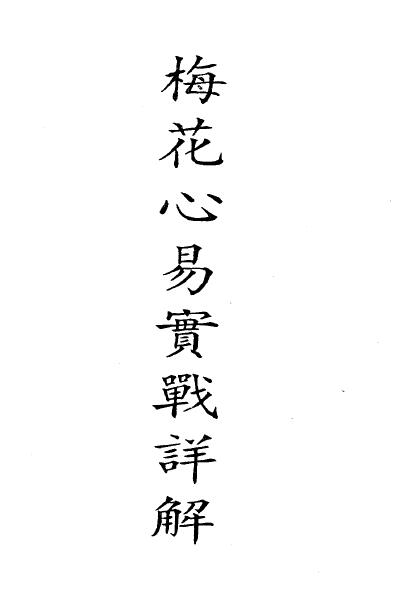 梅花心易實戰詳解